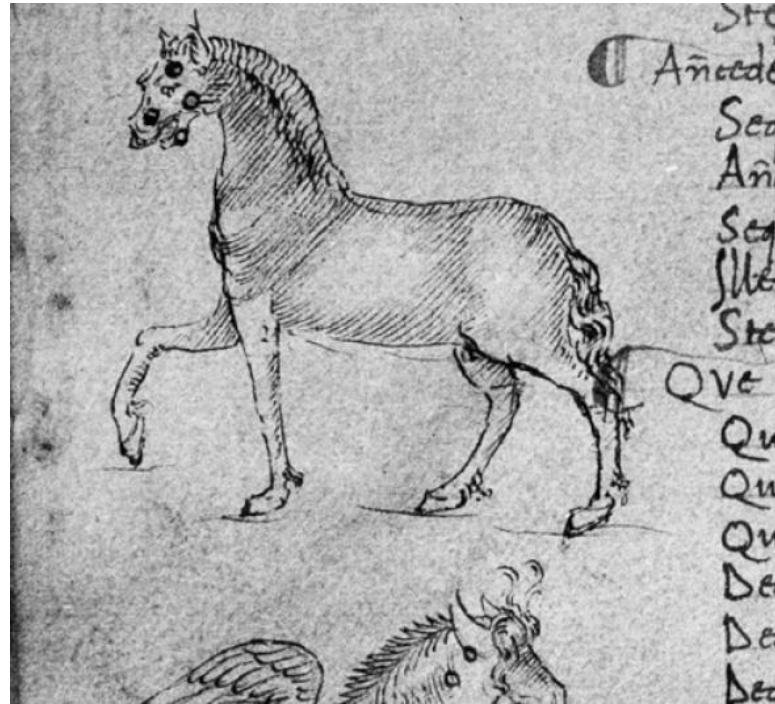 Ste
Añcede
Sed
Añ
Seq
Ste
Que
Qu
Qu
Qu
De
De
Dec